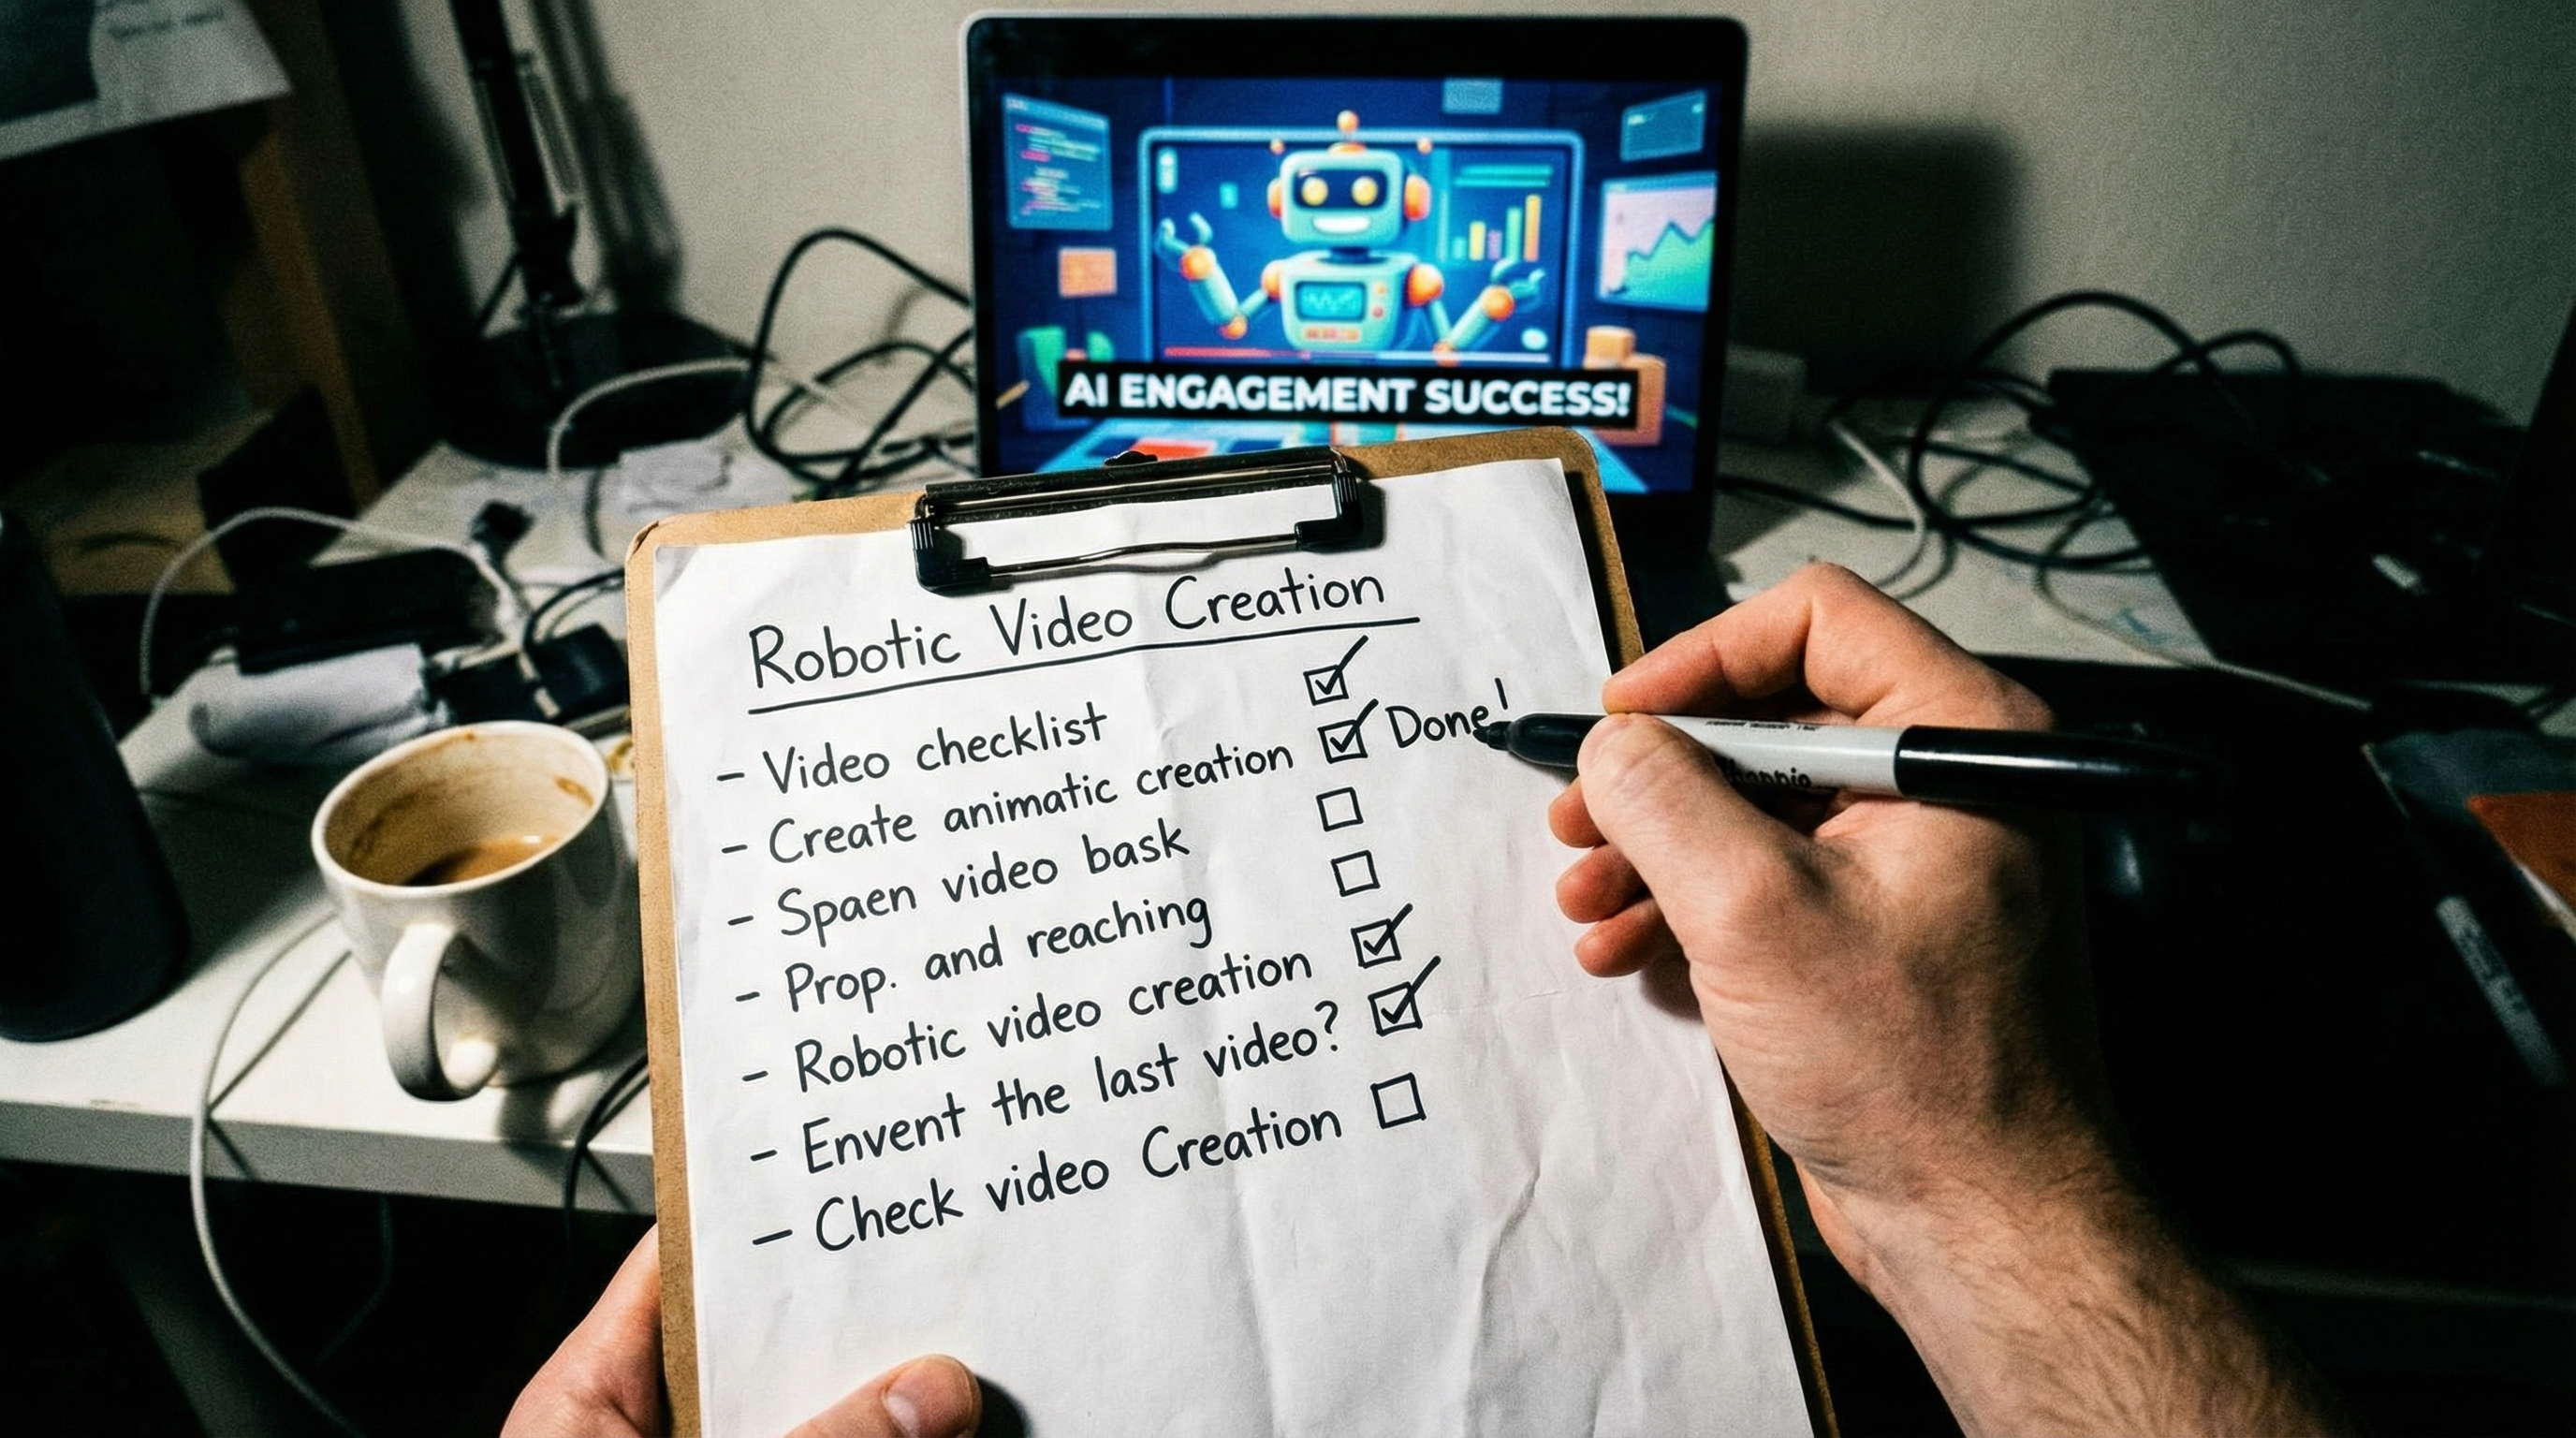 AI ENGAGEMENT SUCCESS!
Robotic Video Creation
- Video checklist
- Create animatic creation Done!
- Spaen video bask
- Prop. and reaching
- Robotic video creation
- Envent the last video?
- Check video Creation